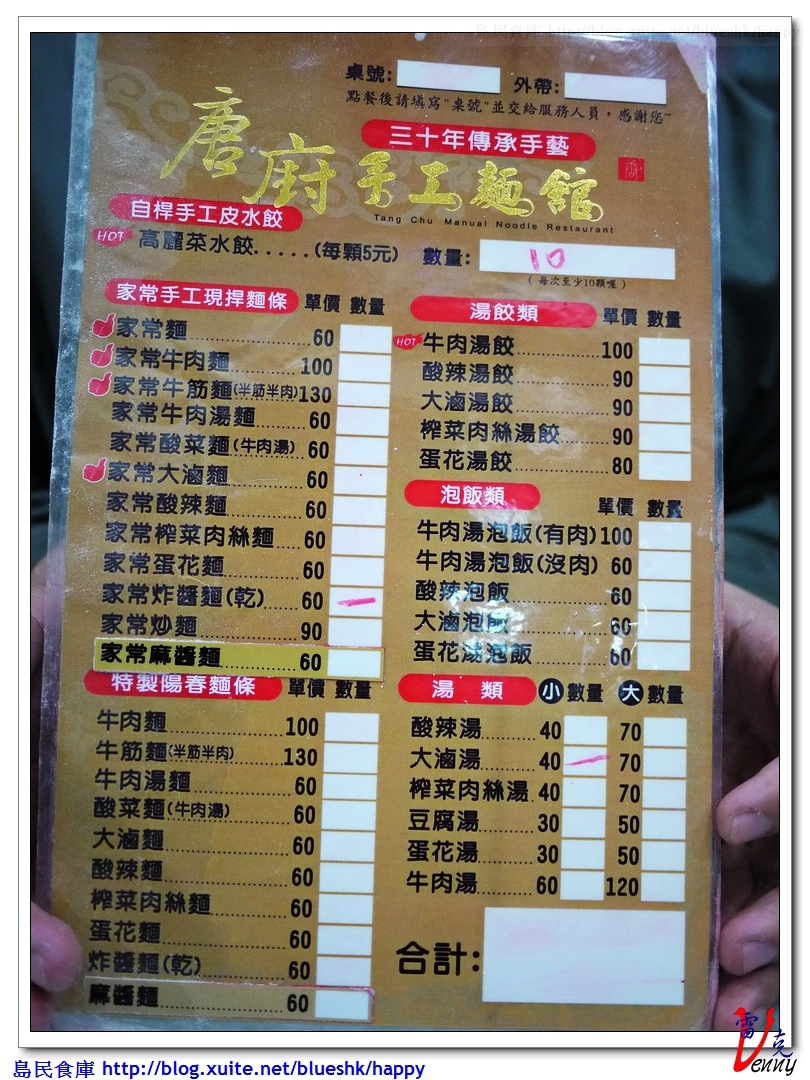 島民食庫 http://blog.xuite.net/blueshk/happy
桌號: 外帶:
點餐後請填寫"桌號"並交給服務人員，感謝您~
三十年傳承手藝
唐府手工麵館
Tang Chu Manual Noodle Restaurant
自桿手工皮水餃
HOT 高麗菜水餃.....(每顆5元) 數量: 10
(每次至少10顆喔)
家常手工現捍麵條 單價 數量
家常麵 60
家常牛肉麵 100
家常牛筋麵(半筋半肉) 130
家常牛肉湯麵 60
家常酸菜麵(牛肉湯) 60
家常大滷麵 60
家常酸辣麵 60
家常榨菜肉絲麵 60
家常蛋花麵 60
家常炸醬麵(乾) 60
家常炒麵 90
家常麻醬麵 60
特製陽春麵條 單價 數量
牛肉麵 100
牛筋麵(半筋半肉) 130
牛肉湯麵 60
酸菜麵(牛肉湯) 60
大滷麵 60
酸辣麵 60
榨菜肉絲麵 60
蛋花麵 60
炸醬麵(乾) 60
麻醬麵 60
湯餃類 單價 數量
HOT 牛肉湯餃 100
酸辣湯餃 90
大滷湯餃 90
榨菜肉絲湯餃 90
蛋花湯餃 80
泡飯類 單價 數量
牛肉湯泡飯(有肉) 100
牛肉湯泡飯(沒肉) 60
酸辣泡飯 60
大滷泡飯 60
蛋花湯泡飯 60
湯 類 小 數量 大 數量
酸辣湯 40 70
大滷湯 40 70
榨菜肉絲湯 40 70
豆腐湯 30 50
蛋花湯 30 50
牛肉湯 60 120
合計:
雷克
Venny
島民食庫 http://blog.xuite.net/blueshk/happy